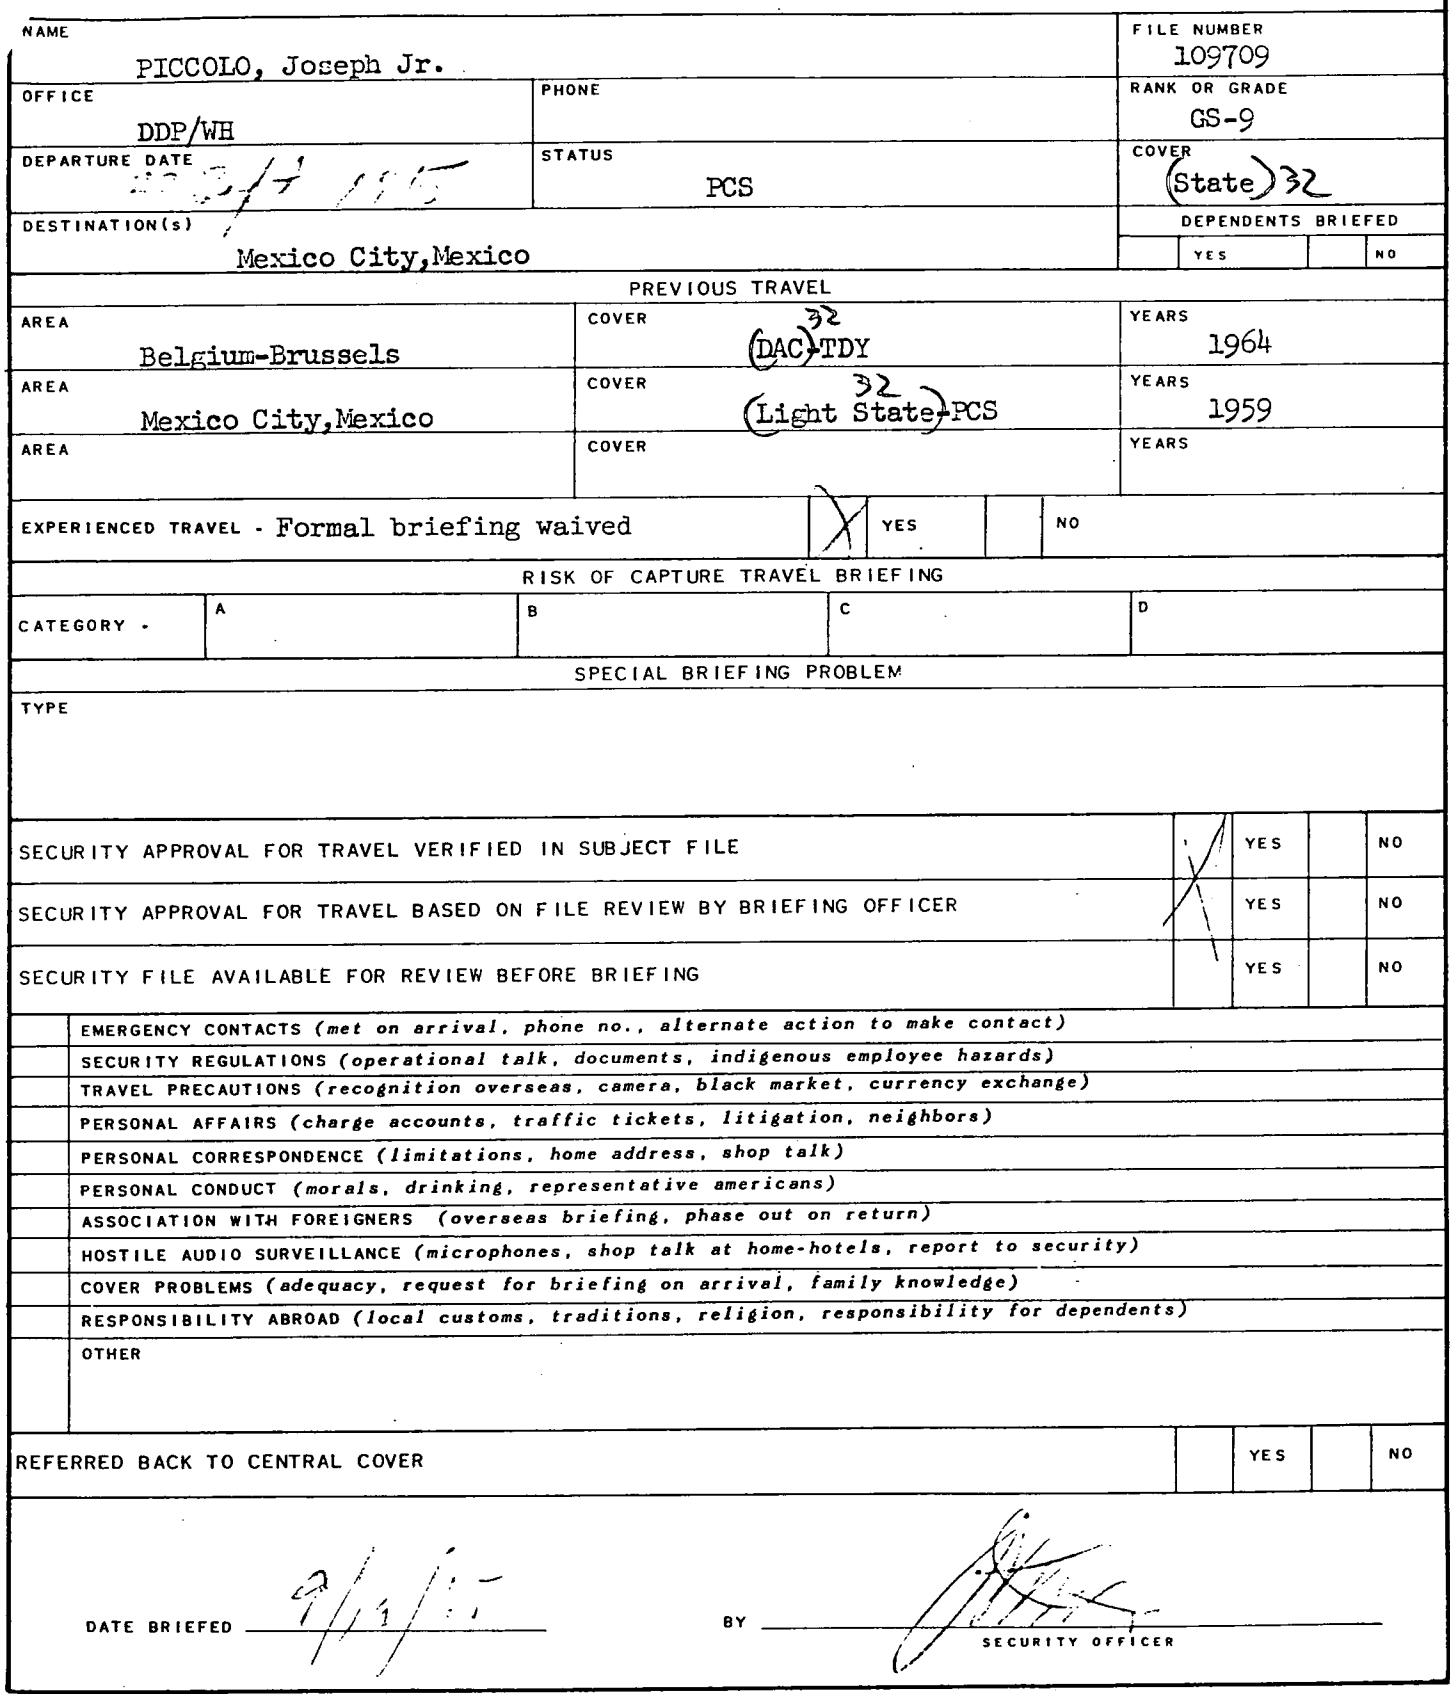 NAME
PICCOLO, Joseph Jr.
FILE NUMBER
109709
OFFICE
DDP/WH
PHONE
RANK OR GRADE
GS-9
DEPARTURE DATE
STATUS
PCS
COVER
(State) 32
DESTINATION(s)
Mexico City,Mexico
DEPENDENTS BRIEFED
YES NO
PREVIOUS TRAVEL
AREA
Belgium-Brussels
COVER
32
(DAC)-TDY
YEARS
1964
AREA
Mexico City,Mexico
COVER
32
(Light State)-PCS
YEARS
1959
AREA
COVER
YEARS
EXPERIENCED TRAVEL - Formal briefing waived X YES NO
RISK OF CAPTURE TRAVEL BRIEFING
CATEGORY - A B C D
SPECIAL BRIEFING PROBLEM
TYPE
SECURITY APPROVAL FOR TRAVEL VERIFIED IN SUBJECT FILE YES NO
SECURITY APPROVAL FOR TRAVEL BASED ON FILE REVIEW BY BRIEFING OFFICER X YES NO
SECURITY FILE AVAILABLE FOR REVIEW BEFORE BRIEFING YES NO
EMERGENCY CONTACTS (met on arrival, phone no., alternate action to make contact)
SECURITY REGULATIONS (operational talk, documents, indigenous employee hazards)
TRAVEL PRECAUTIONS (recognition overseas, camera, black market, currency exchange)
PERSONAL AFFAIRS (charge accounts, traffic tickets, litigation, neighbors)
PERSONAL CORRESPONDENCE (limitations, home address, shop talk)
PERSONAL CONDUCT (morals, drinking, representative americans)
ASSOCIATION WITH FOREIGNERS (overseas briefing, phase out on return)
HOSTILE AUDIO SURVEILLANCE (microphones, shop talk at home-hotels, report to security)
COVER PROBLEMS (adequacy, request for briefing on arrival, family knowledge)
RESPONSIBILITY ABROAD (local customs, traditions, religion, responsibility for dependents)
OTHER
REFERRED BACK TO CENTRAL COVER YES NO
DATE BRIEFED
BY
SECURITY OFFICER